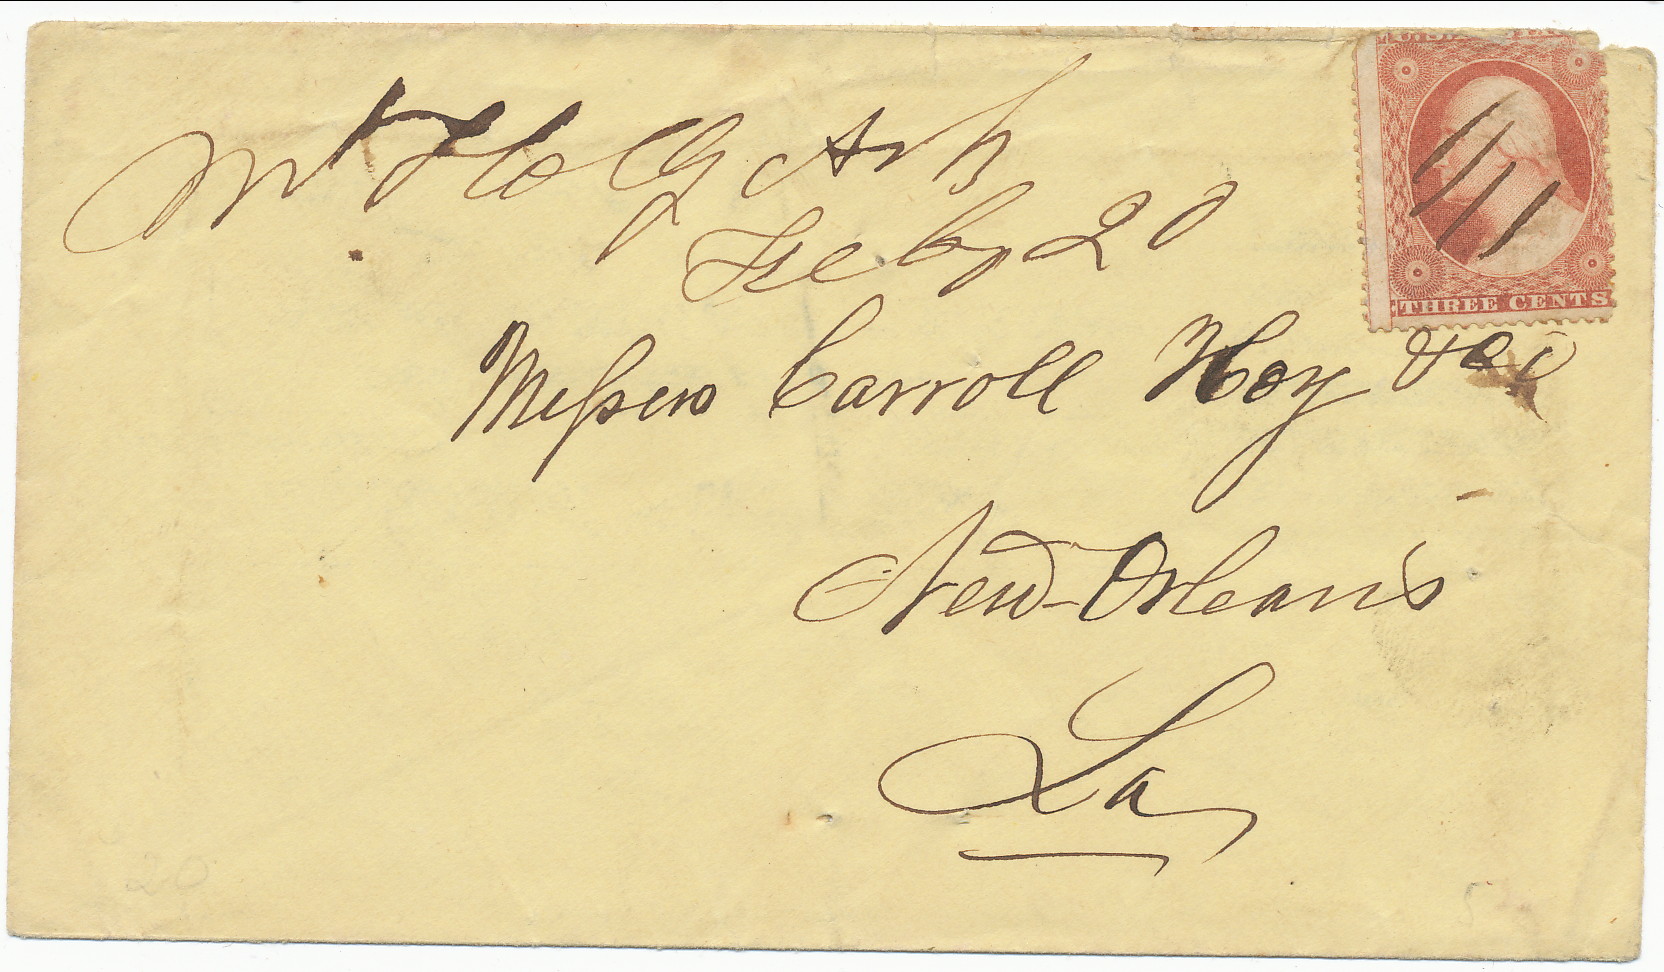 Mt Holly Ark
Feby 20
Messrs Carroll Hoy & Co
New-Orleans
La
THREE CENTS
20
5